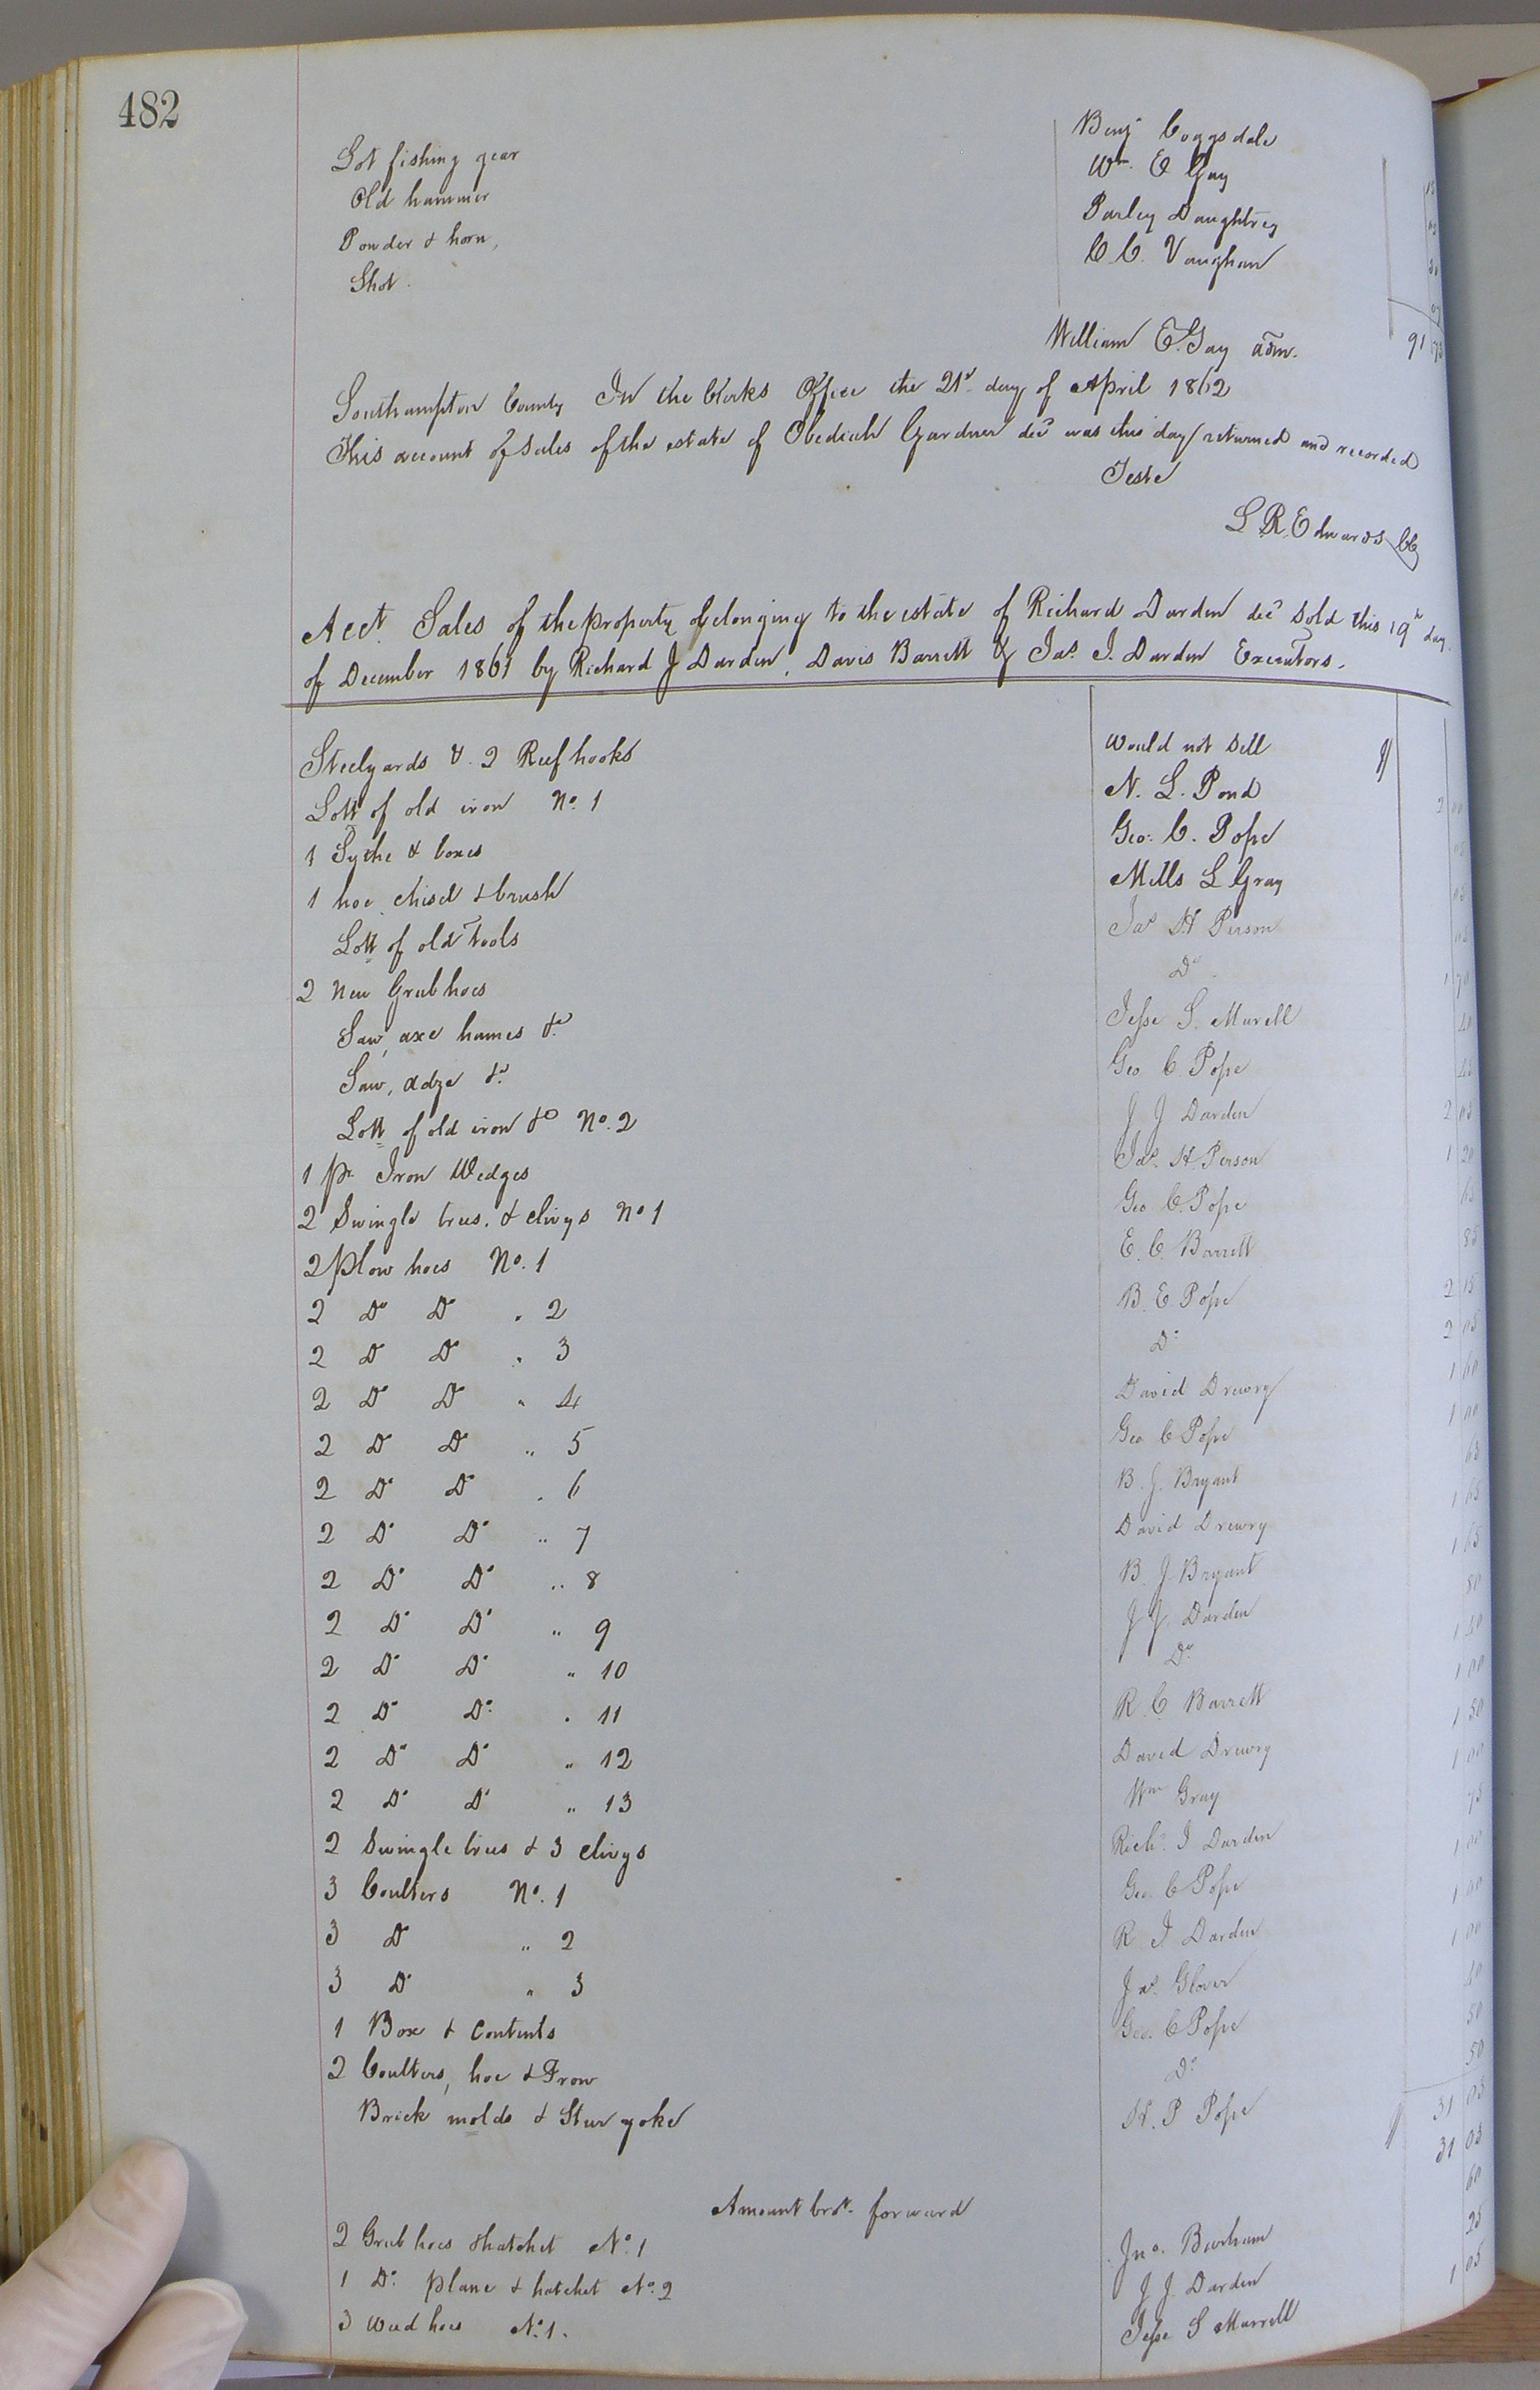 482
Lot fishing gear Benj Coggsdale
Old hammer Wm. E Gay
Powder & horn, Parley Daughtrey
Shot. C. C. Vaughan
William E. Gay adm. 91
Southampton County In the Clerks Office the 21st day of April 1862
This account of sales of the estate of Obediah Gardner decd was this day returned and recorded
Teste
L R. Edwards CC
Acct. Sales of the property belonging to the estate of Richard Darden decd Sold this 19th day
of December 1861 by Richard J Darden, Davis Barrett & Jas. J. Darden Executors.
Steelyards & 2 Reef hooks Would not Sell
Lott of old iron No. 1 N. L. Pond 2 00
1 Sythe & boxes Geo. C. Pope
1 hoe, chisel & brush Mills L Gray 05
Lott of old Tools Jas H Person
2 New Grub hoes Do 1 70
Saw, axe hames &c Jesse S. Murell 40
Saw, adze &c Geo C. Pope
Lott of old iron &c No. 2 J J Darden 2 05
1 pr. Iron Wedges Jas. H. Person 1 20
2 Swingle trees, & clivys No 1 Geo C. Pope
2 Plow hoes No. 1 E. C. Barrett 85
2 Do Do " 2 B. E Pope 2 15
2 Do Do " 3 Do 2 05
2 Do Do " 4 David Drewry 1 60
2 Do Do " 5 Geo C Pope 1 00
2 Do Do " 6 B. J. Bryant 63
2 Do Do " 7 David Drewry 1 65
2 Do Do " 8 B. J Bryant 1 65
2 Do Do " 9 J J. Darden 80
2 Do Do " 10 Do. 1 40
2 Do Do " 11 R. C Barrett 1 00
2 Do Do " 12 David Drewry 1 50
2 Do Do " 13 Wm Gray 1 00
2 Swingle trees & 3 clivys Richd. J Darden 75
3 Coulters No. 1 Geo. C Pope 1 00
3 Do " 2 R J. Darden 1 00
3 Do " 3 Jas. Glover 1 00
1 Box & Contents Geo. C Pope 40
2 Coulters, hoe & Frow Do 50
Brick molds & Stur yoke H. P Pope 50
31 03
Amount brot. forward 31 03
2 Grub hoes & hatchet No. 1 Jno. Barham 60
1 Do. plane & hatchet No. 2 J J. Darden 25
3 Weed hoes No. 1. Jesse S Murrell 1 05